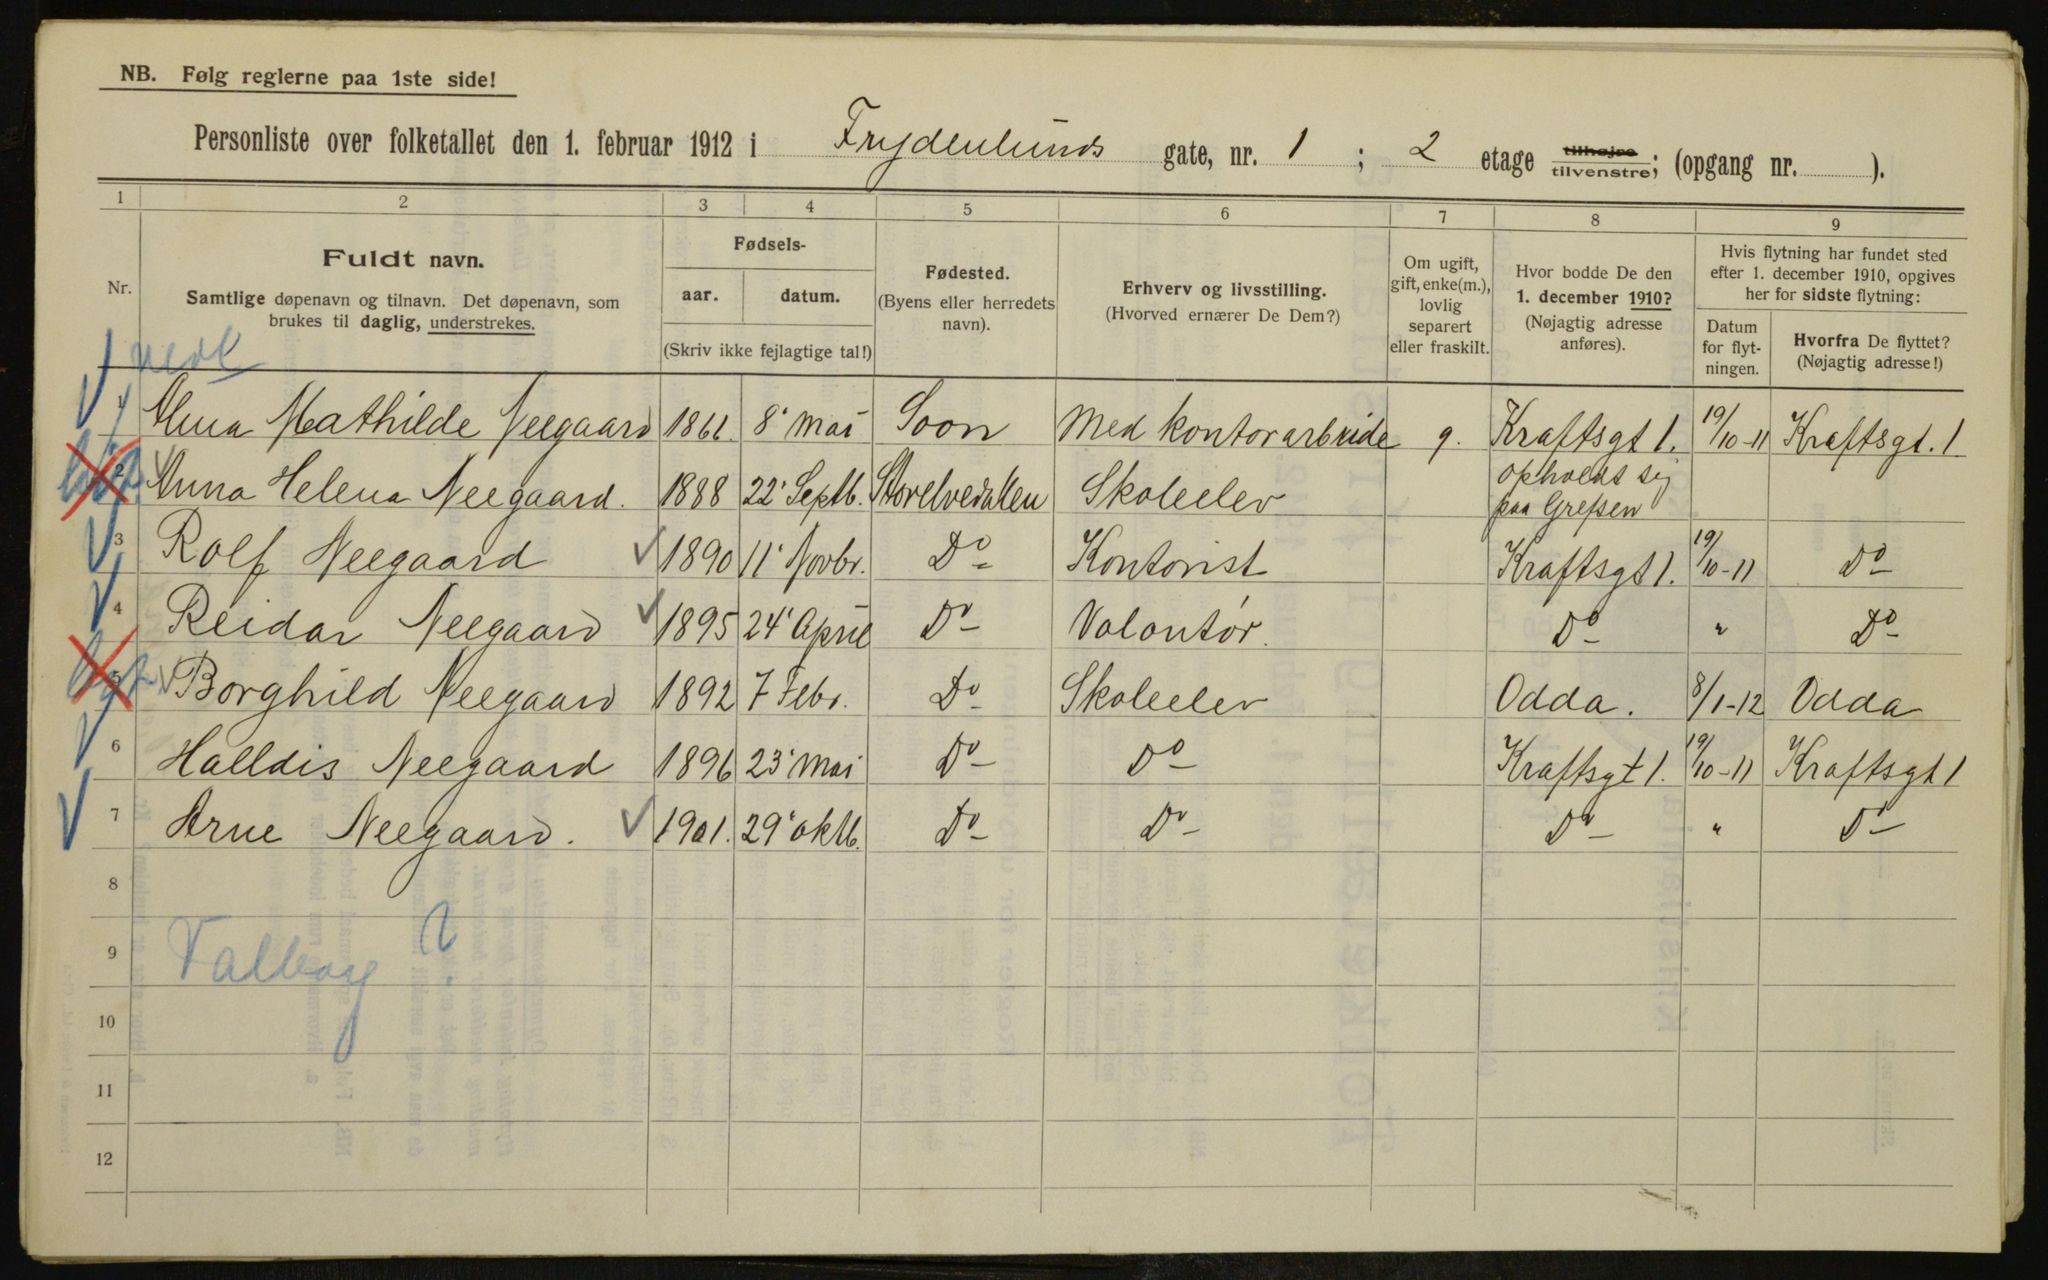 NB. Følg reglerne paa 1ste side!
Personliste over folketallet den 1. februar 1912 i Frydenlunds gate, nr. 1 ; 2 etage tilhøjre tilvenstre; (opgang nr. ).
1 2 3 4 5 6 7 8 9
Nr.
Fuldt navn.
Samtlige døpenavn og tilnavn. Det døpenavn, som
brukes til daglig, understrekes.
Fødsels-
aar. datum.
(Skriv ikke fejlagtige tal!)
Fødested.
(Byens eller herredets
navn).
Erhverv og livsstilling.
(Hvorved ernærer De Dem?)
Om ugift,
gift, enke(m.),
lovlig
separert
eller fraskilt.
Hvor bodde De den
1. december 1910?
(Nøjagtig adresse
anføres).
Hvis flytning har fundet sted
efter 1. december 1910, opgives
her for sidste flytning:
Datum
for flyt-
ningen.
Hvorfra De flyttet?
(Nøjagtig adresse!)
1 Alma Mathilde Neegaard 1861. 8' Mai Soon Med kontorarbeide g. Kraftsgt 1. 19/10-11 Kraftsgt. 1
2 Anna Helena Neegaard. 1888 22' Septb. Storelvedalen Skoleelev opholdt sig
paa Grefsen
3 Rolf Neegaard 1890 11' Novbr. Do Kontorist Kraftsgt 1. 19/10-11 Do
4 Reidar Neegaard 1895 24' April Do Volontør. Do " Do
5 Borghild Neegaard 1892 7 Febr. Do Skoleelev Odda. 8/1-12 Odda
6 Halldis Neegaard 1896 23' Mai Do Do Kraftsgt 1. 19/10-11 Kraftsgt 1
7 Arne Neegaard. 1901. 29' oktb. Do Do Do " Do
8
9 Valborg ?
10
11
12